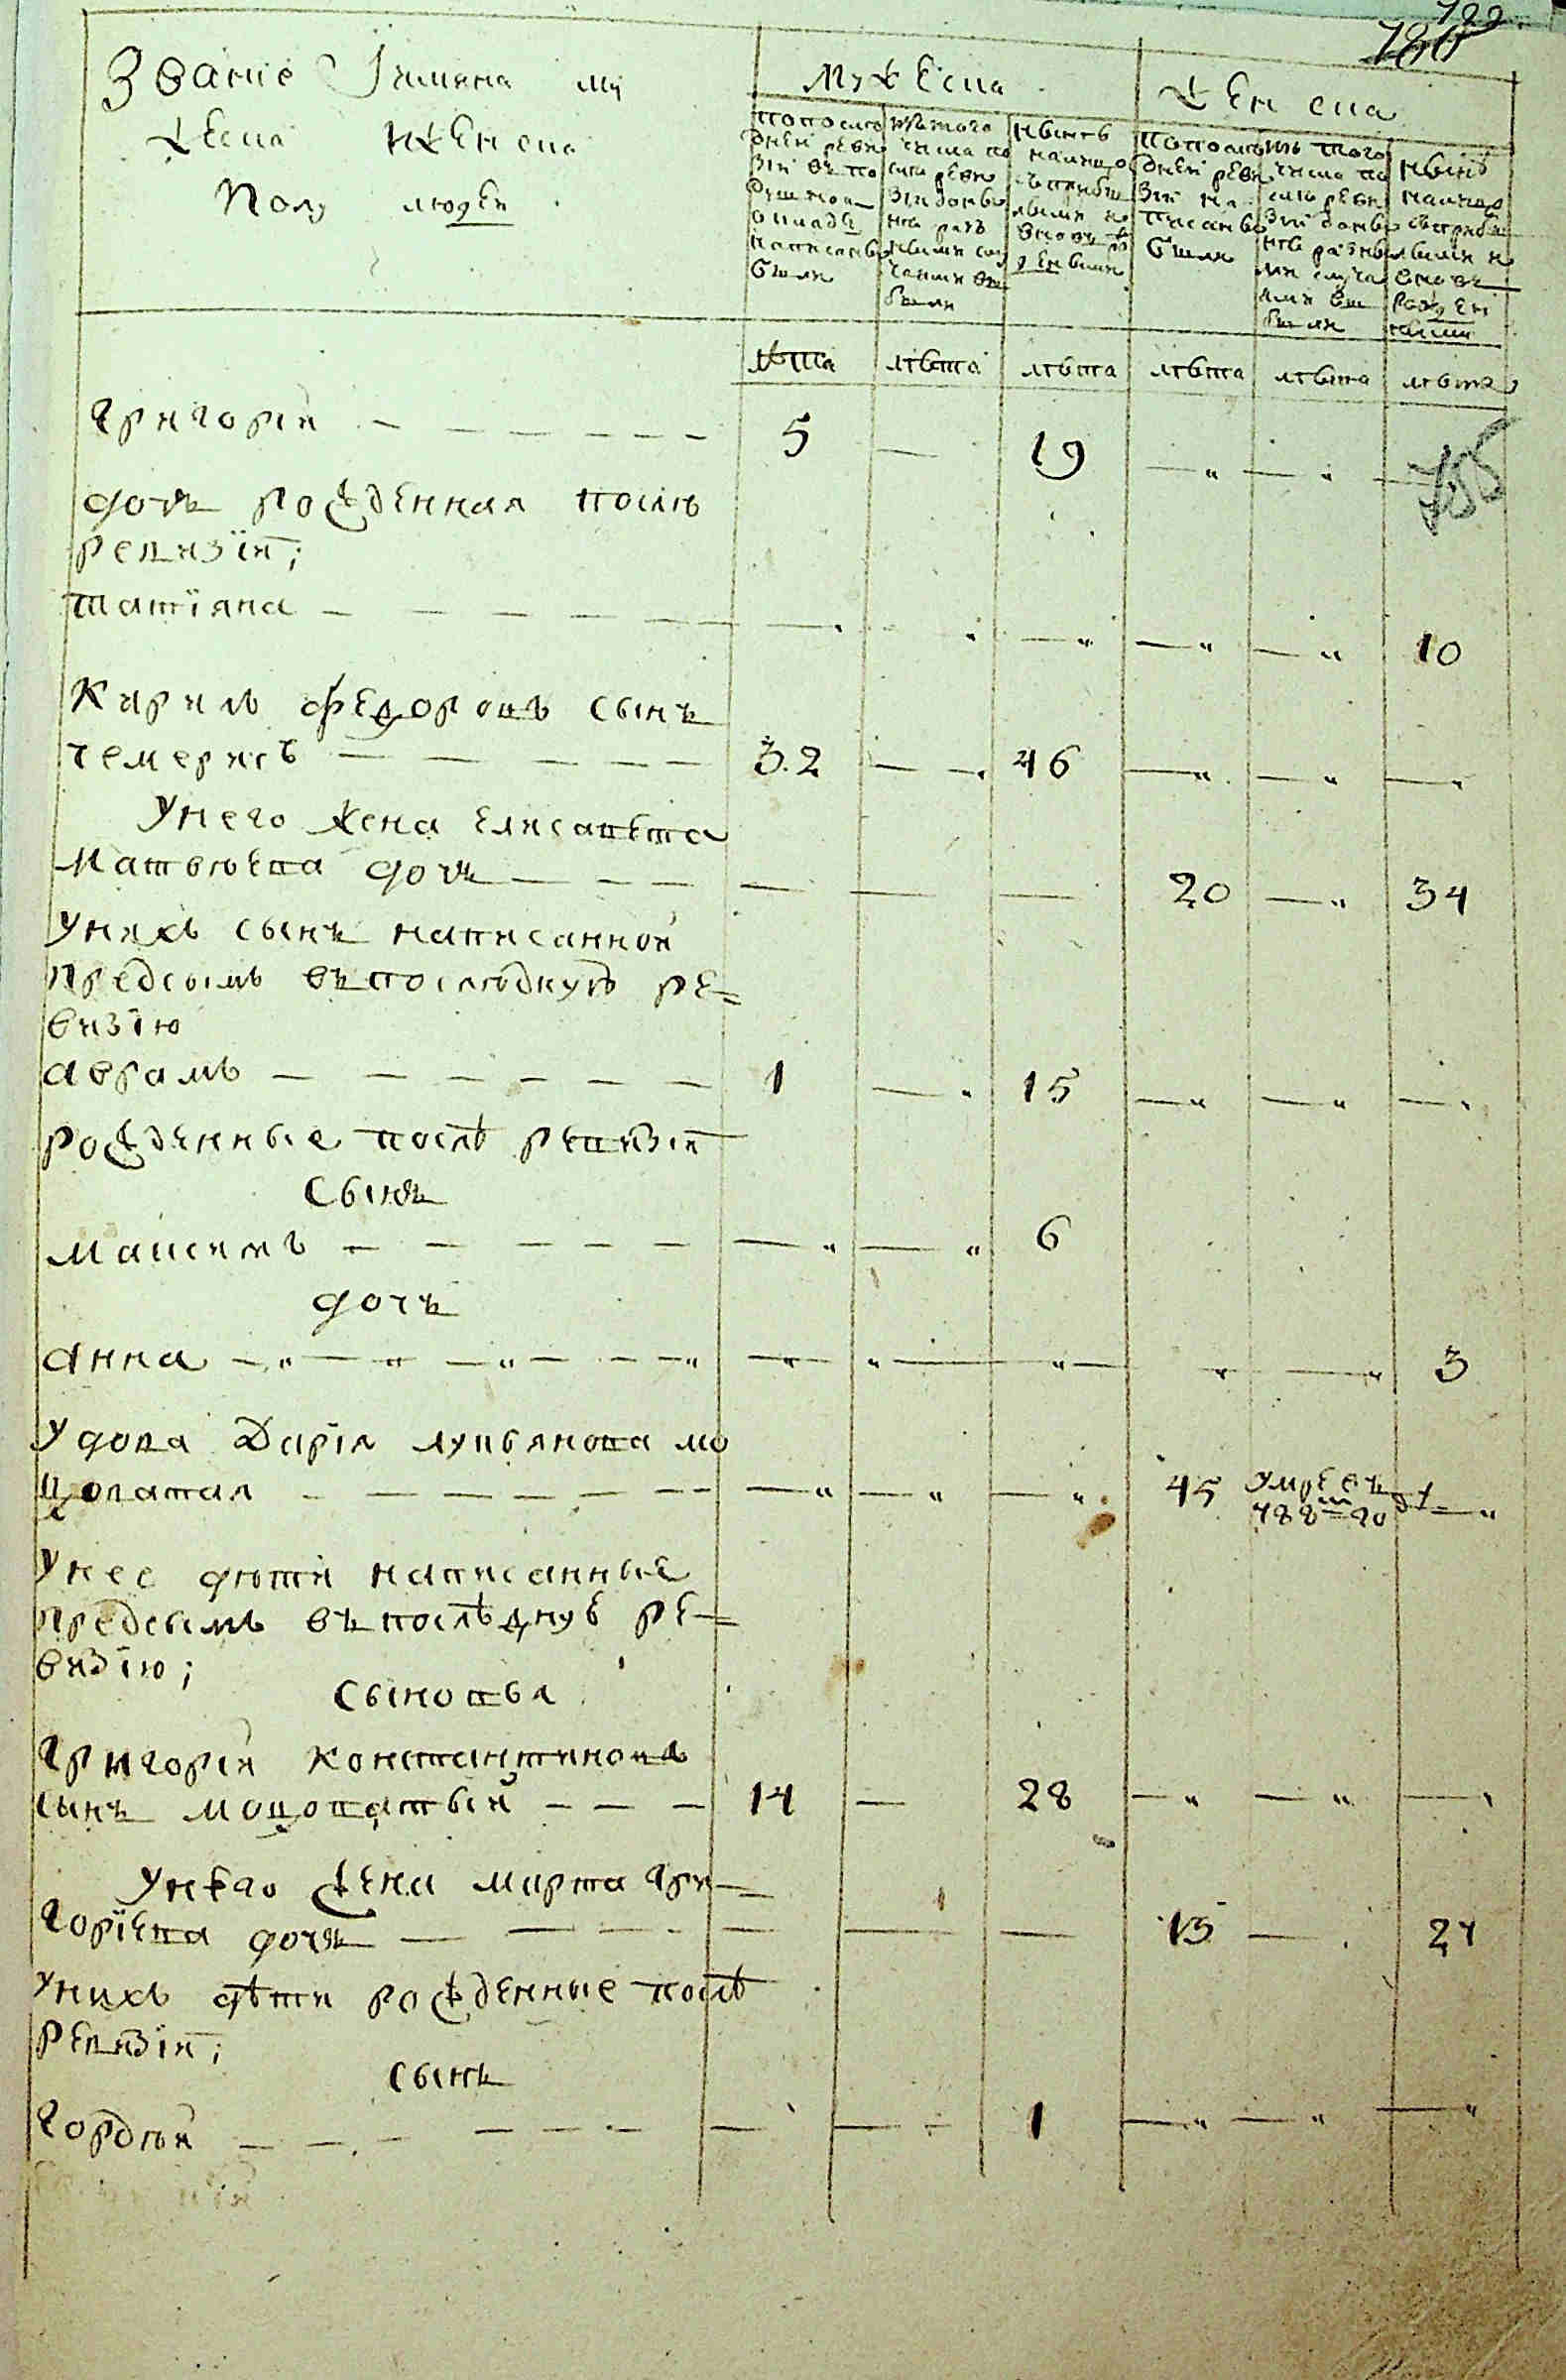 Званіе Їимяна му
жеска иженска
полу людей
Мужеска
Женска
попослѣ
дней реви
зіи въ по
душном
окладѣ
написанъ
были
изтого
числа по
слѣ реви
зіи домъ
нѣ раз
ными слу
чаями вы
были
нынѣ
налицо
съ прибы
лыми и
вновь ро
жденными
попослѣ
дней реви
зіи на
писанъ
были
изъ того
числа по
слѣ реви
зіи донъ
нѣ разны
ми случа
ями вы
были
нынѣ
налицо
съприбы
лыми и
вновь
рожден
ными
лѣта лѣта лѣта лѣта лѣта лѣта
Григорій — 5 — 19 — —
дочь рожденная послѣ
ревизіи;
Татіяна — — — — — — 10
Кирилъ Федоровъ сынъ
Чемерисъ — 32 — 46 — — —
Унего жена Елисавета
Матвѣева дочь — — — — 20 — 34
Унихъ сынъ написанной
предсимъ въпослѣдную ре=
визію
Аврамъ — 1 — 15 — — —
рожденные послѣ ревизіи
Сынъ
Максимъ — — — 6
дочь
Анна — — — — — — 3
Удова Дарія Лукьянова Мо
цоватая — — — — 45 умре въ
788м го
Унее дѣти написанные
предсимъ въпослѣдную ре=
визію;
Сыновья
Григорій Константиновъ
сынъ Моцоватый — 14 — 28 — — —
Унего жена Марта Гри=
горіева дочь — — — — 15 — 27
Унихъ дѣти рожденные послѣ
ревизіи;
сынъ
Гордѣй — — — 1 — — —